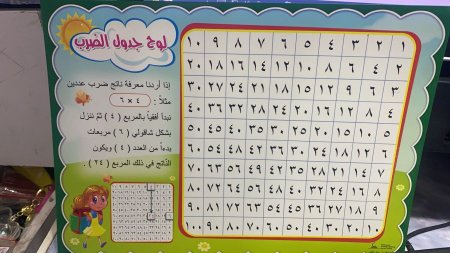 لوح جدول الضرب
إذا أردنا معرفة ناتج ضرب عددين
مثلاً :
٤ × ٦
نبدأ أفقياً بالمربع ( ٤ ) ثم ننزل
بشكل شاقولي ( ٦ ) مربعات
بدءاً من العدد ( ٤ ) ويكون
الناتج في ذلك المربع ( ٢٤ ) .
١ ٢ ٣ ٤ ٥ ٦ ٧ ٨ ٩ ١٠
٢ ٤ ٦ ٨ ١٠ ١٢ ١٤ ١٦ ١٨ ٢٠
٣ ٦ ٩ ١٢ ١٥ ١٨ ٢١ ٢٤ ٢٧ ٣٠
٤ ٨ ١٢ ١٦ ٢٠ ٢٤ ٢٨ ٣٢ ٣٦ ٤٠
٥ ١٠ ١٥ ٢٠ ٢٥ ٣٠ ٣٥ ٤٠ ٤٥ ٥٠
٦ ١٢ ١٨ ٢٤ ٣٠ ٣٦ ٤٢ ٤٨ ٥٤ ٦٠
٧ ١٤ ٢١ ٢٨ ٣٥ ٤٢ ٤٩ ٥٦ ٦٣ ٧٠
٨ ١٦ ٢٤ ٣٢ ٤٠ ٤٨ ٥٦ ٦٤ ٧٢ ٨٠
٩ ١٨ ٢٧ ٣٦ ٤٥ ٥٤ ٦٣ ٧٢ ٨١ ٩٠
١٠ ٢٠ ٣٠ ٤٠ ٥٠ ٦٠ ٧٠ ٨٠ ٩٠ ١٠٠